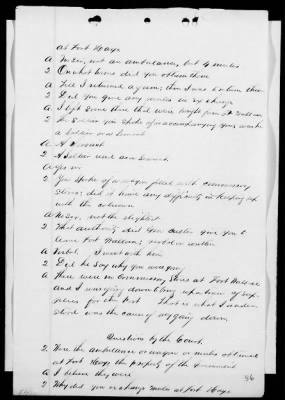 at Fort Hays
A No Sir, not an ambulance, but 4 mules
2 On what terms did you obtain them
A Till I returned again; then I was to return them
2 Did you give any mules in exchange
A I left some there that were brought from Ft Wallace
2 The Soldier you spoke of as accompanying you, was he
a Soldier or a Servant
A A Servant
2 A Soldier used as a Servant
A Yes Sir
2 You spoke of a wagon filled with commissary
stores; did it have any difficulty in keeping up
with the column
A No Sir, not the slightest
2 What authority did Gen Custer give you to
leave Fort Wallace; verbal or written
A Verbal. I went with him
2 Did he say why you were going
A There were no Commissary Stores at Fort Wallace
and I was going down to bring up a train of sup-
plies for the post. This is what I under-
stood was the cause of my going down.
Questions by the Court.
2 Were the ambulance or wagon or mules obtained
at Fort Hays the property of the Government
A I believe they were
2 Why did you exchange mules at Fort Hays
96